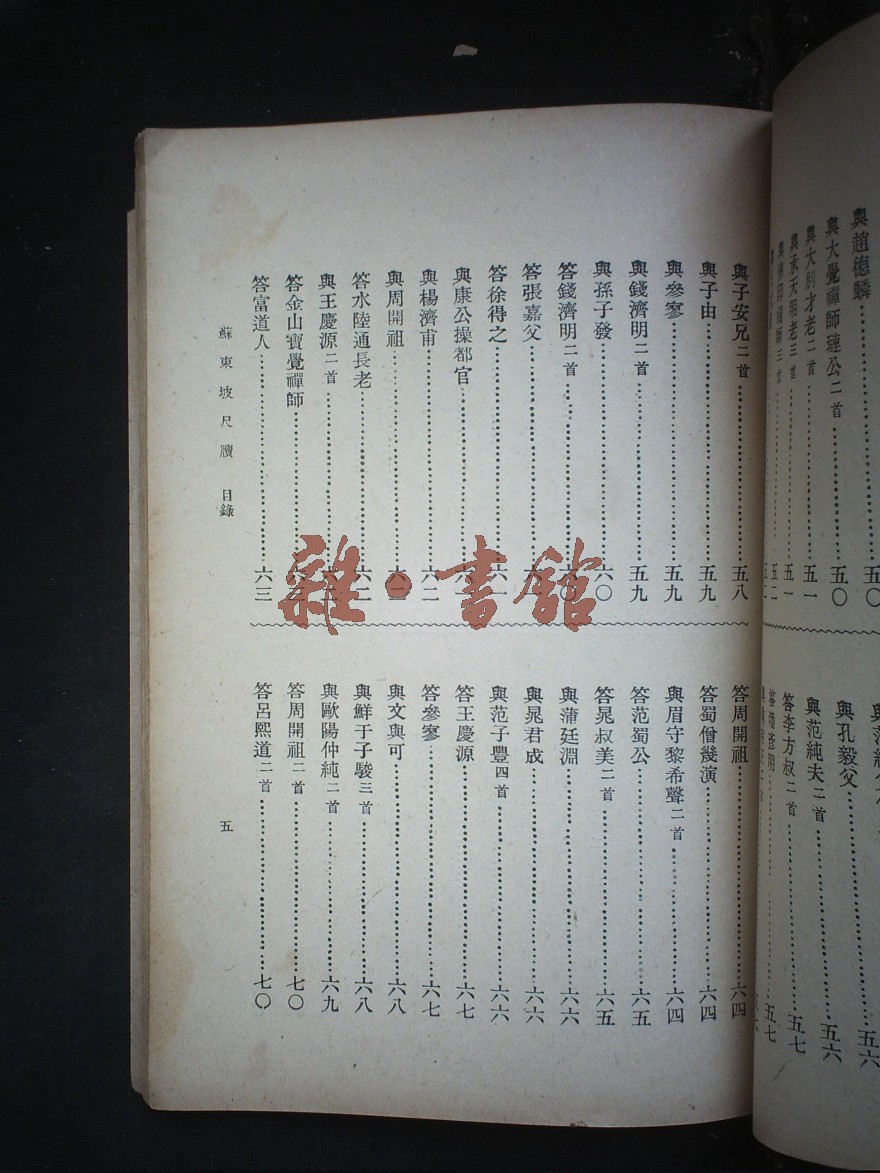 與趙德麟……五〇
與大覺禪師璉公二首……五〇
與大別才老二首……五一
與承天明老三首……五一
與佛印禪師三首……五二
與孔毅父……五六
與范純夫二首……五六
答李方叔二首……五七
五七
與子安兄二首……五八
與子由……五九
與參寥……五九
與錢濟明二首……五九
與孫子發……六〇
答錢濟明二首……六〇
答張嘉父……六
答徐得之……六一
與康公操都官……六一
與楊濟甫……六二
與周開祖……六二
答水陸通長老……六二
與王慶源二首
答金山寶覺禪師
答富道人……六三
答周開祖……六四
答蜀僧幾演……六四
與眉守黎希聲二首……六四
答范蜀公……六五
答晁叔美二首……六五
與蒲廷淵……六六
與晁君成……六六
與范子豐四首……六六
答王慶源……六七
答參寥……六七
與文與可……六八
與鮮于子駿三首……六八
與歐陽仲純二首……六九
答周開祖二首……七〇
答呂熙道二首……七〇
蘇東坡尺牘 目錄
五
雜·書館